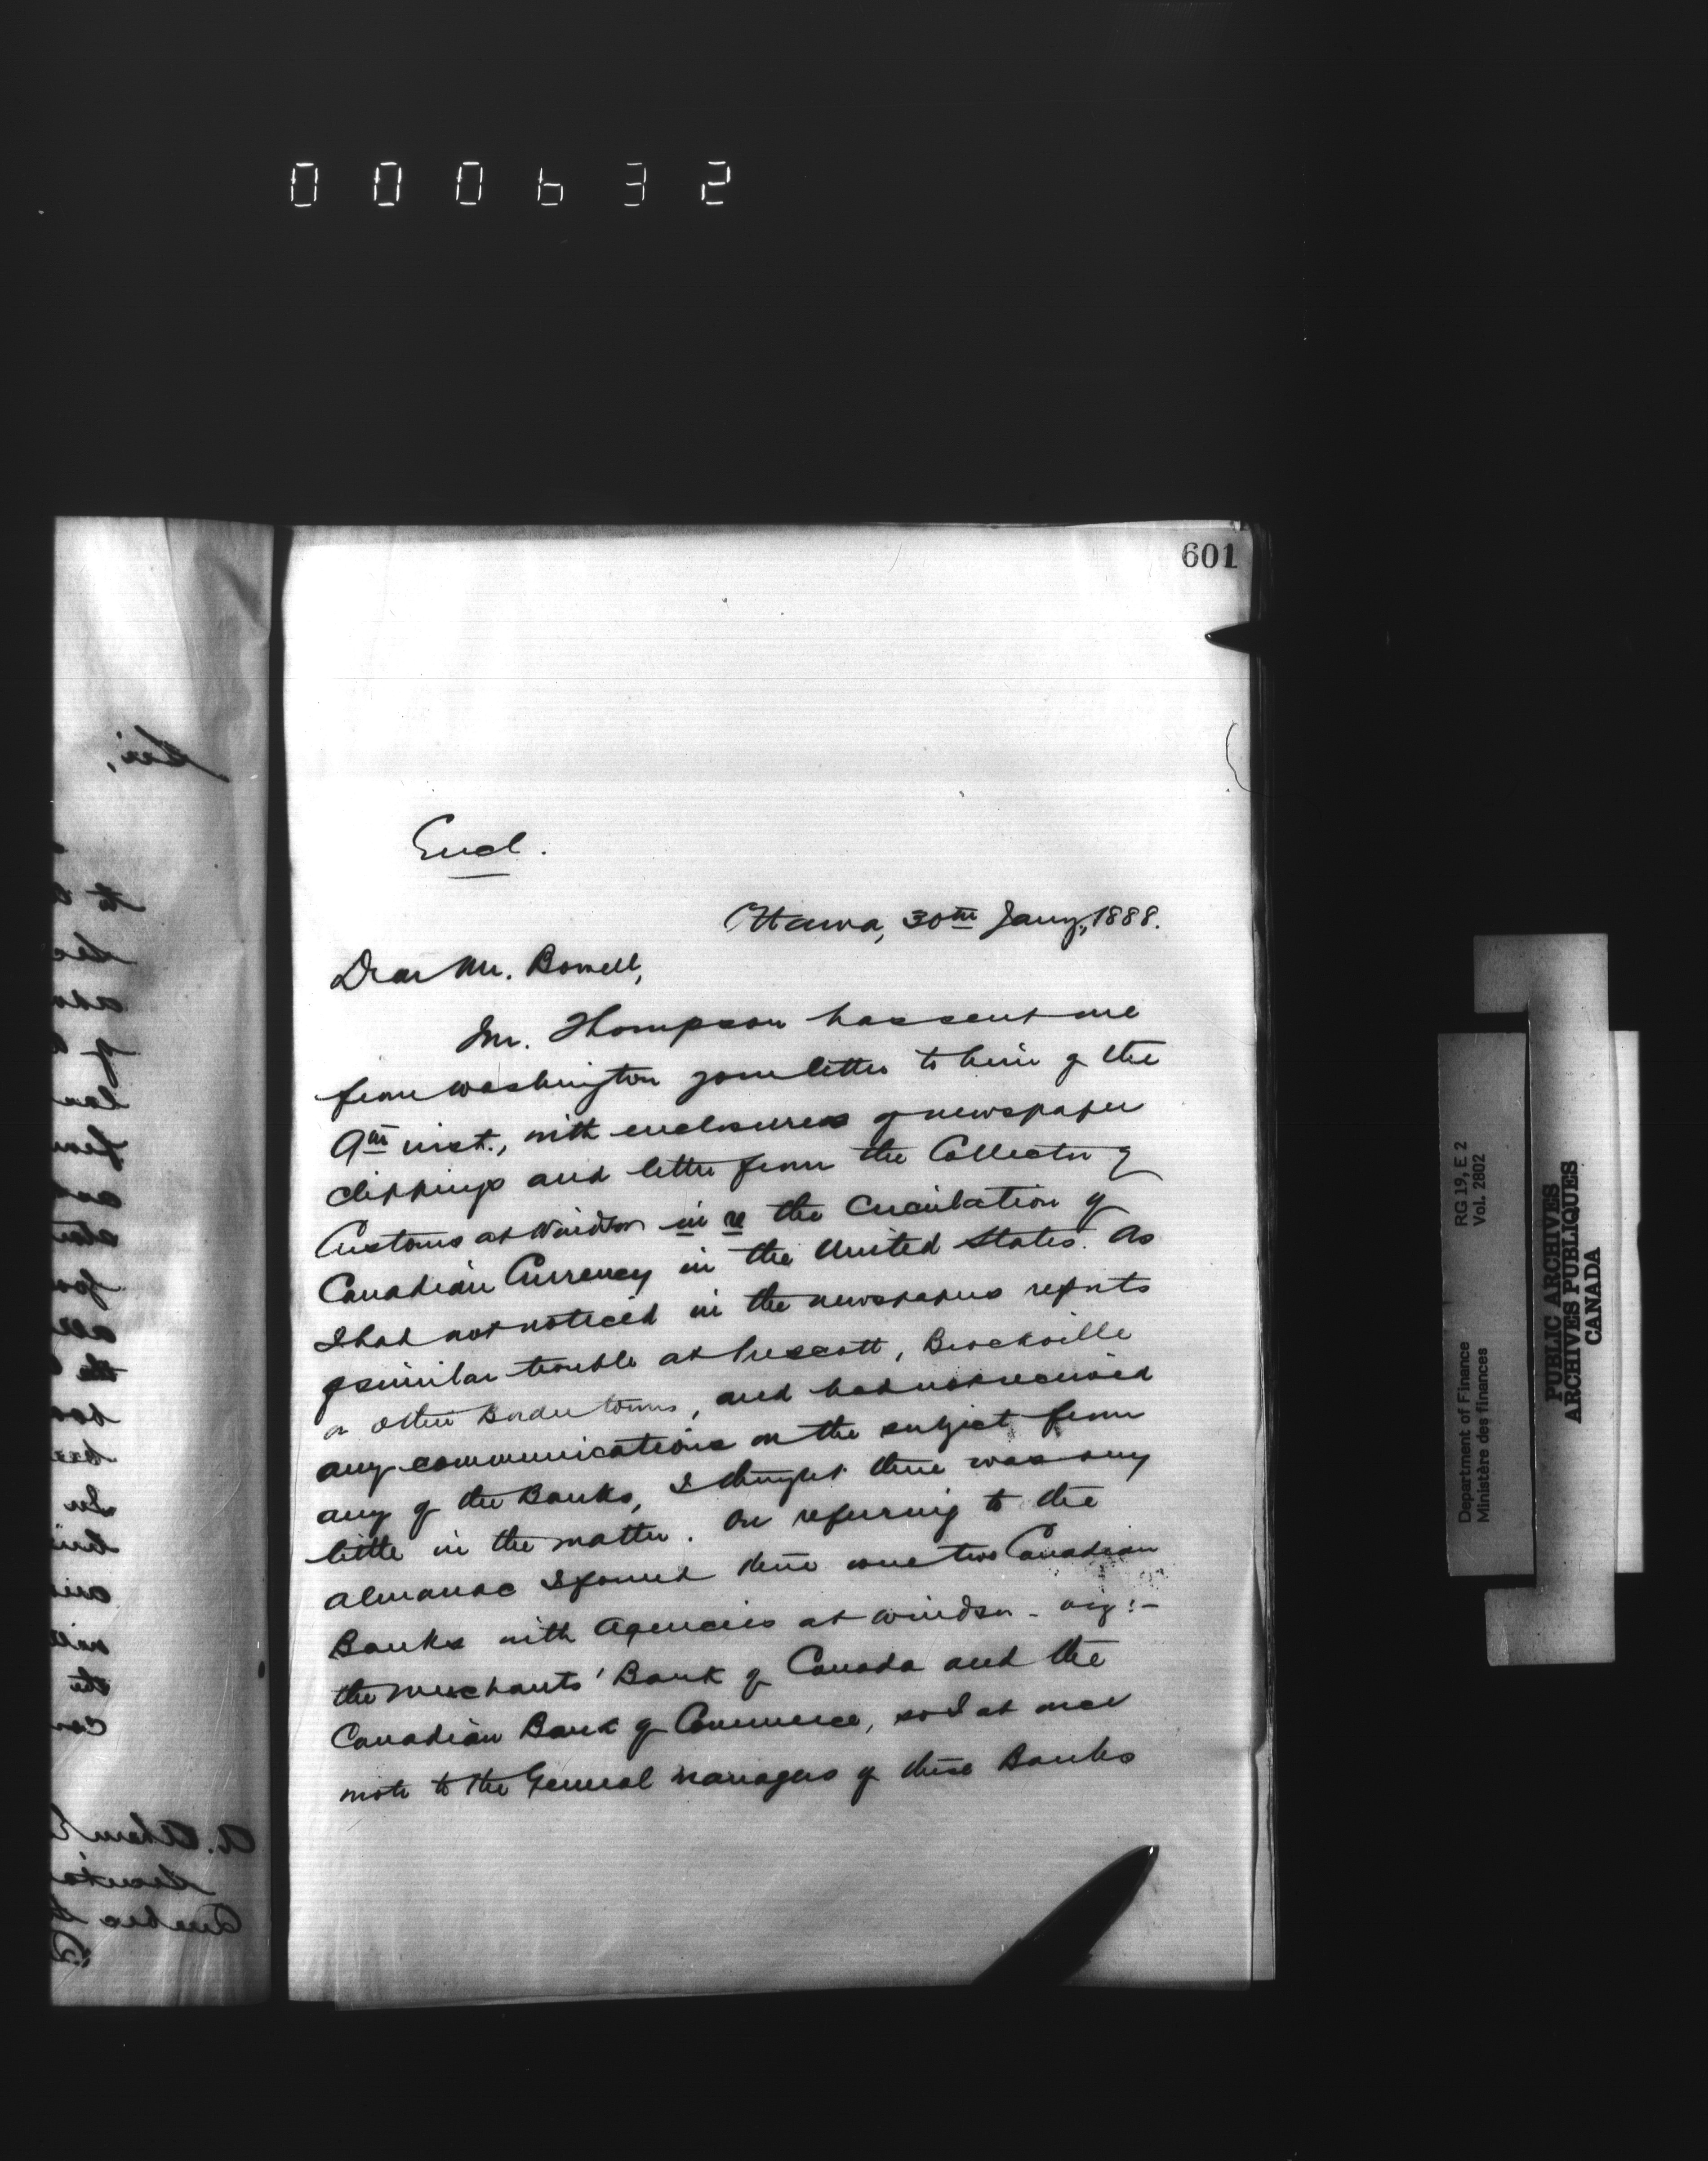 000632
601
Encl.
Ottawa, 30th Jany, 1888.
Dear Mr. Bowell,
Mr. Thompson has sent me
from Washington your letter to him of the
9th inst., with enclosures of newspaper
clippings and letter from the Collector of
Customs at Windsor in re the circulation of
Canadian Currency in the United States. As
I had not noticed in the newspapers reports
of similar trouble at Prescott, Brockville
or other Border towns, and had not received
any communications on the subject from
any of the Banks, I thought there was very
little in the matter. On referring to the
Almanac I found there were two Canadian
Banks with Agencies at Windsor - viz:-
the Merchants' Bank of Canada and the
Canadian Bank of Commerce, so I at once
wrote to the General Managers of these Banks
Department of Finance RG 19, E 2
Ministère des finances Vol. 2802
PUBLIC ARCHIVES
ARCHIVES PUBLIQUES
CANADA